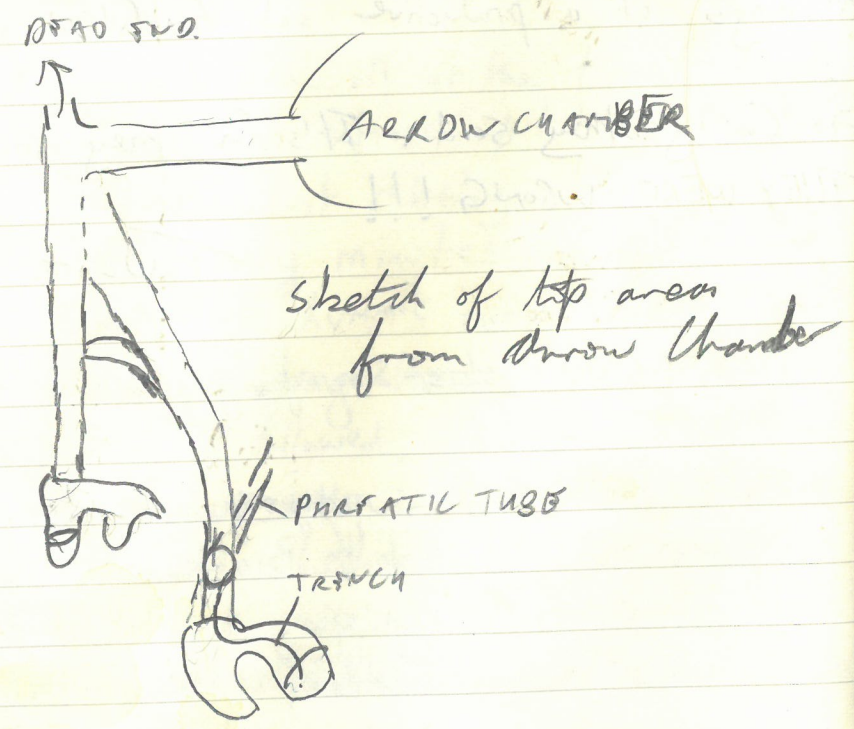 DEAD END.
ARROW CHAMBER
sketch of top areas
from Arrow Chamber
PHREATIC TUBE
TRENCH